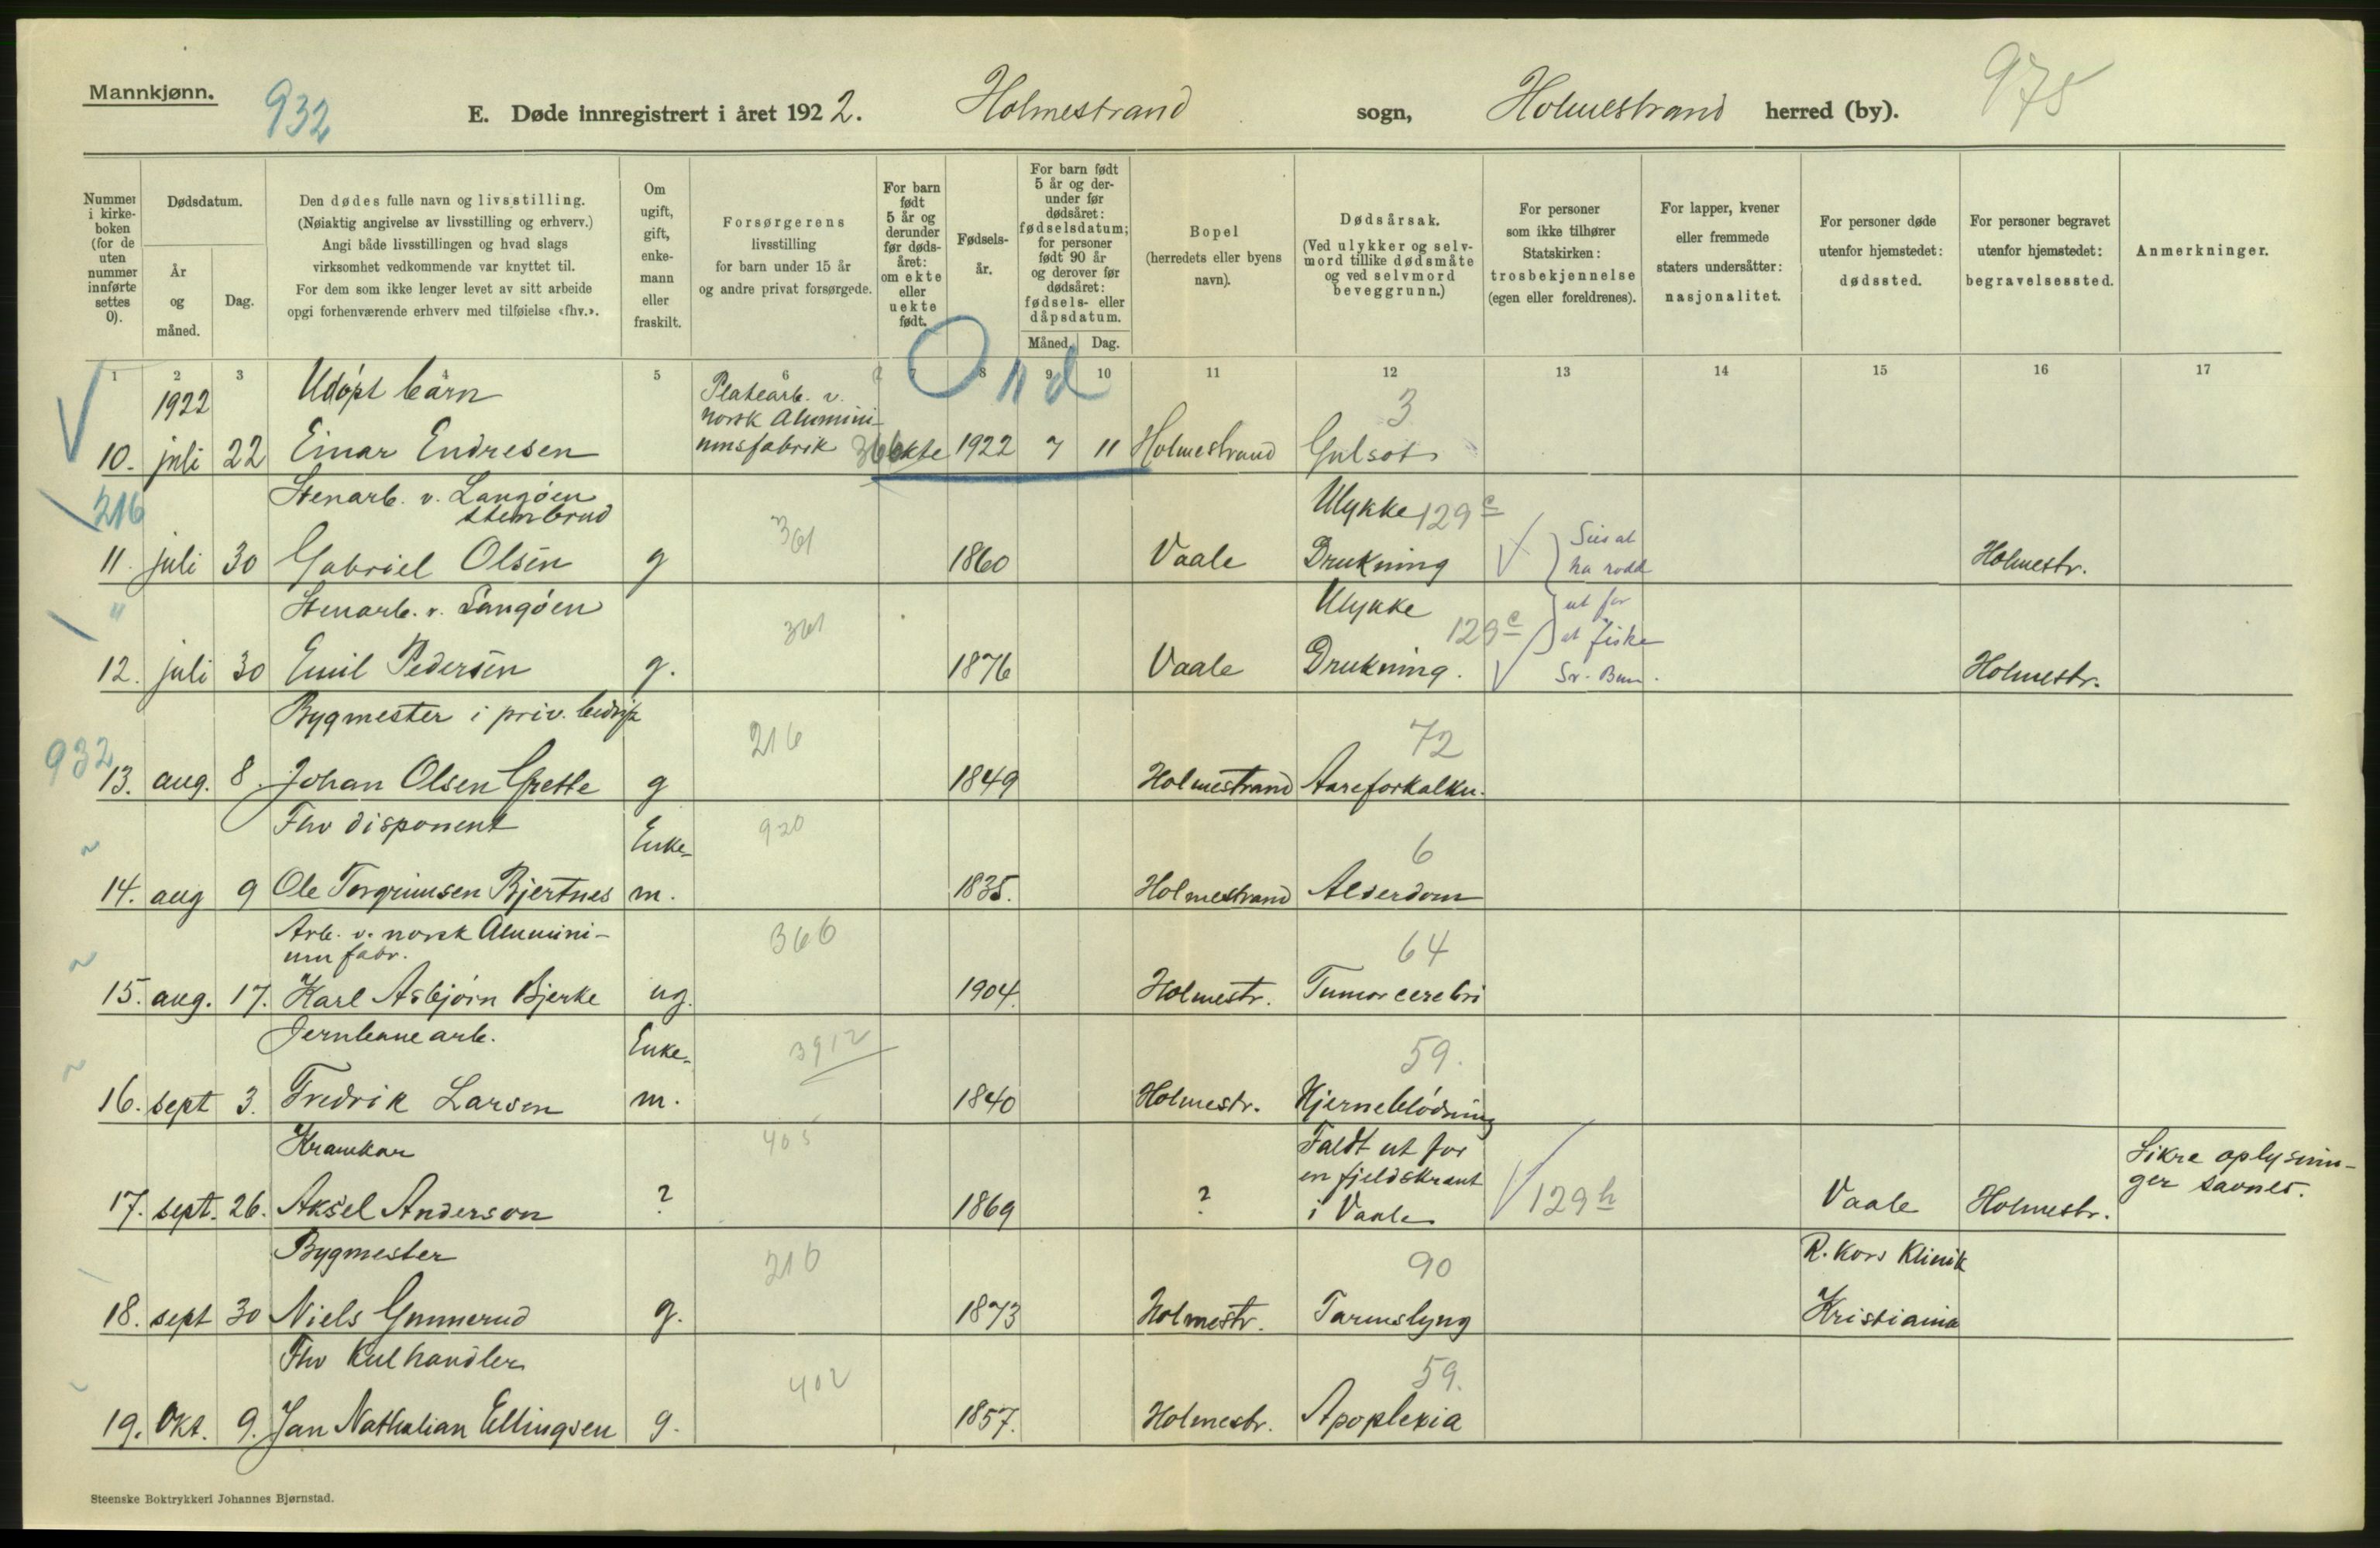 Mannkjønn.
932
E. Døde innregistrert i året 1922.
Holmestrand sogn, Holmestrand herred (by).
975
Nummer i kirkeboken (for de uten nummer innførte settes 0).
Dødsdatum.
År og måned.
Dag.
Den dødes fulle navn og livsstilling.
(Nøiaktig angivelse av livsstilling og erhverv.)
Angi både livsstillingen og hvad slags
virksomhet vedkommende var knyttet til.
For dem som ikke lenger levet av sitt arbeide
opgi forhenværende erhverv med tilføielse «fhv.».
Om ugift, gift, enkemann eller fraskilt.
Forsørgerens
livsstilling
for barn under 15 år
og andre privat forsørgede.
For barn født 5 år og derunder før dødsåret: om ekte eller uekte født.
Fødselsår.
For barn født 5 år og derunder før dødsåret: fødselsdatum; for personer født 90 år og derover før dødsåret: fødsels- eller dåpsdatum.
Måned. Dag.
Bopel
(herredets eller byens
navn).
Dødsårsak.
(Ved ulykker og selvmord tillike dødsmåte og ved selvmord beveggrunn.)
For personer
som ikke tilhører
Statskirken:
trosbekjennelse
(egen eller foreldrenes).
For lapper, kvener
eller fremmede
staters undersåtter:
nasjonalitet.
For personer døde
utenfor hjemstedet:
dødssted.
For personer begravet
utenfor hjemstedet:
begravelsessted.
Anmerkninger.
1 2 3 4 5 6 7 8 9 10 11 12 13 14 15 16 17
1922 Udøpt barn Platearb. v. 11 d 3
norsk Alumini-
10. juli 22 Einar Endresen umsfabrik 366 ekte 1922 7 11 Holmestrand Gulsot
216 Stenarb. v. Langøen Ulykke 129 c
stenbrud
361
11. juli 30 Gabriel Olsen g 1860 Vaale Drukning Sies at ha rodd Holmestr.
" Stenarb. v. Langøen Ulykke ut for
361 129 c at fiske
12. juli 30 Emil Pedersen g. 1876 Vaale Drukning. Holmestr.
Bygmester i priv. bedrift 216 72
932 13. aug. 8. Johan Olsen Grette g 1849 Holmestrand Aareforkalkn.
Fhv disponent Enke- 920 6
14. aug 9 Ole Torgrimsen Bjertnes m. 1835. Holmestrand Alderdom
Arb. v. norsk Alumini- 366 64
um fabr.
15. aug. 17. Karl Asbjørn Bjerke ug. 1904. Holmestr. Tumor cerebri
Jernbanearb. Enke- 3912 59.
16. sept 3. Fredrik Larsen m. 1840 Holmestr. Hjerneblødning
Kramkar 405 Faldt ut for Sikre oplysnin-
en fjeldskrænt ger savnes.
17. sept. 26. Aksel Anderson ? 1869 ? i Vaale 129 h Vaale Holmestr.
Bygmester 216 90 R. Kors Klinik
18. sept 30 Niels Gunnerud g. 1873 Holmestr. Tarmslyng Kristiania
Fhv Kulhandler 402 59.
19. Okt. 9. Jan Nathalian Ellingsen g. 1857. Holmestr. Apoplexia
Steenske Boktrykkeri Johannes Bjørnstad.